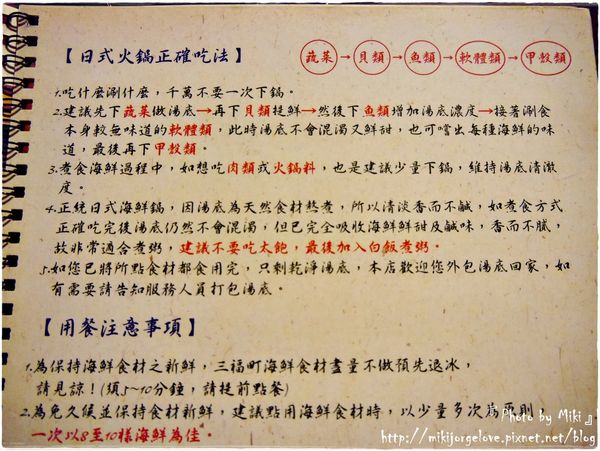 【日式火鍋正確吃法】
蔬菜→貝類→魚類→軟體類→甲殼類
1.吃什麼涮什麼，千萬不要一次下鍋。
2.建議先下蔬菜做湯底→再下貝類提鮮→然後下魚類增加湯底濃度→接著涮食
本身較無味道的軟體類，此時湯底不會混濁又鮮甜，也可嚐出每種海鮮的味
道，最後再下甲殼類。
3.煮食海鮮過程中，如想吃肉類或火鍋料，也是建議少量下鍋，維持湯底清澈
度。
4.正統日式海鮮鍋，因湯底為天然食材熬煮，所以清淡香而不鹹，如煮食方式
正確吃完後湯底仍然不會混濁，但已完全吸收海鮮鮮甜及鹹味，香而不膩，
故非常適合煮粥，建議不要吃太飽，最後加入白飯煮粥。
5.如您已將所點食材都食用完，只剩乾淨湯底，本店歡迎您外包湯底回家，如
有需要請告知服務人員打包湯底。
【用餐注意事項】
1.為保持海鮮食材之新鮮，三福町海鮮食材盡量不做預先退冰，
請見諒！(須5~10分鐘，請提前點餐)
2.為免久候並保持食材新鮮，建議點用海鮮食材時，以少量多次為原則
一次以8至10樣海鮮為佳。
Photo by Miki 』
http://mikijorgelove.pixnet.net/blog